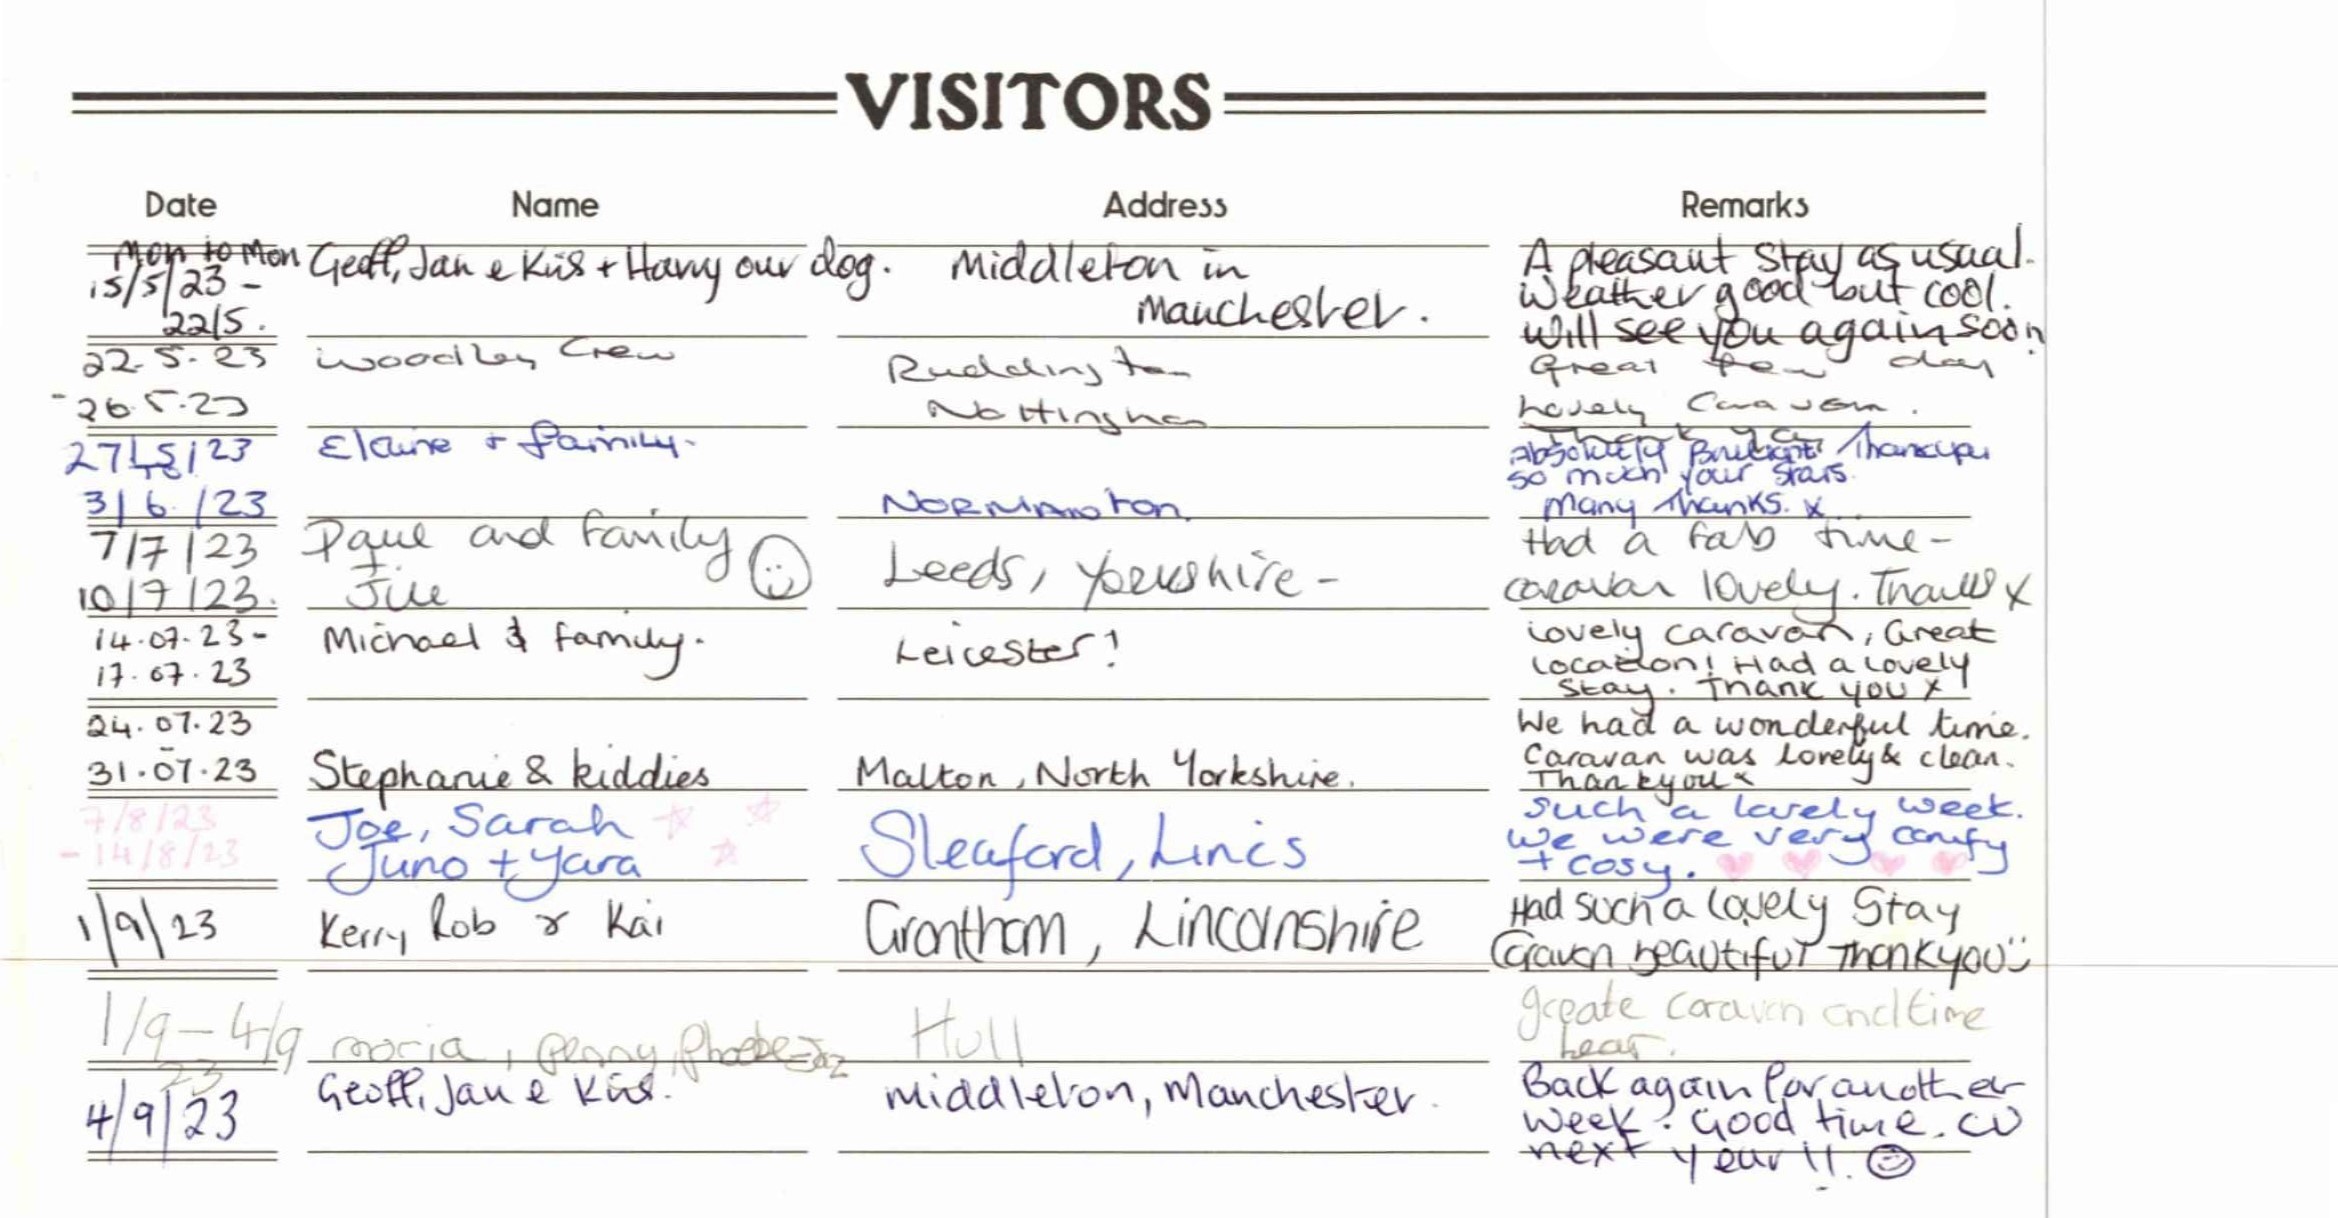 VISITORS
Date Name Address Remarks
Mon to Mon Geoff, Jan & Kris + Harry our dog. Middleton in A pleasant stay as usual.
15/5/23 - Manchester. Weather good but cool.
22/5. will see you again soon
22.5.23 Woodley Crew Ruddington Great few day
- 26.5.23 Nottingham Lovely Caravan.
Thank you
27/5/23 Elaine + family. Absolutely Brilliant Thankyou
to so much your stars.
3/6/23 Normanton Many Thanks. x
7/7/23 Paul and family Had a fab time -
+ Leeds, Yorkshire -
10/7/23. Jill caravan lovely. Thanks x
14.07.23 - Michael & family. Leicester! Lovely caravan, Great
17.07.23 location! Had a lovely
stay. Thank you x
24.07.23 We had a wonderful time.
- Caravan was lovely & clean.
31.07.23 Stephanie & kiddies Malton, North Yorkshire. Thankyou x
7/8/23 Joe, Sarah Sleaford, Lincs Such a lovely week.
- 14/8/23 Juno + Yara We were very comfy
+ cosy.
1/9/23 Kerry Rob & Kai Grantham, Lincolnshire Had such a lovely stay
Caravan beautiful Thankyou
1/9 - 4/9 maria, penny, Phoebe Hull greate caravan and time
23 hear.
4/9/23 Geoff, Jan & Kris. Middleton, Manchester. Back again for another
week. Good time. CU
next year!!